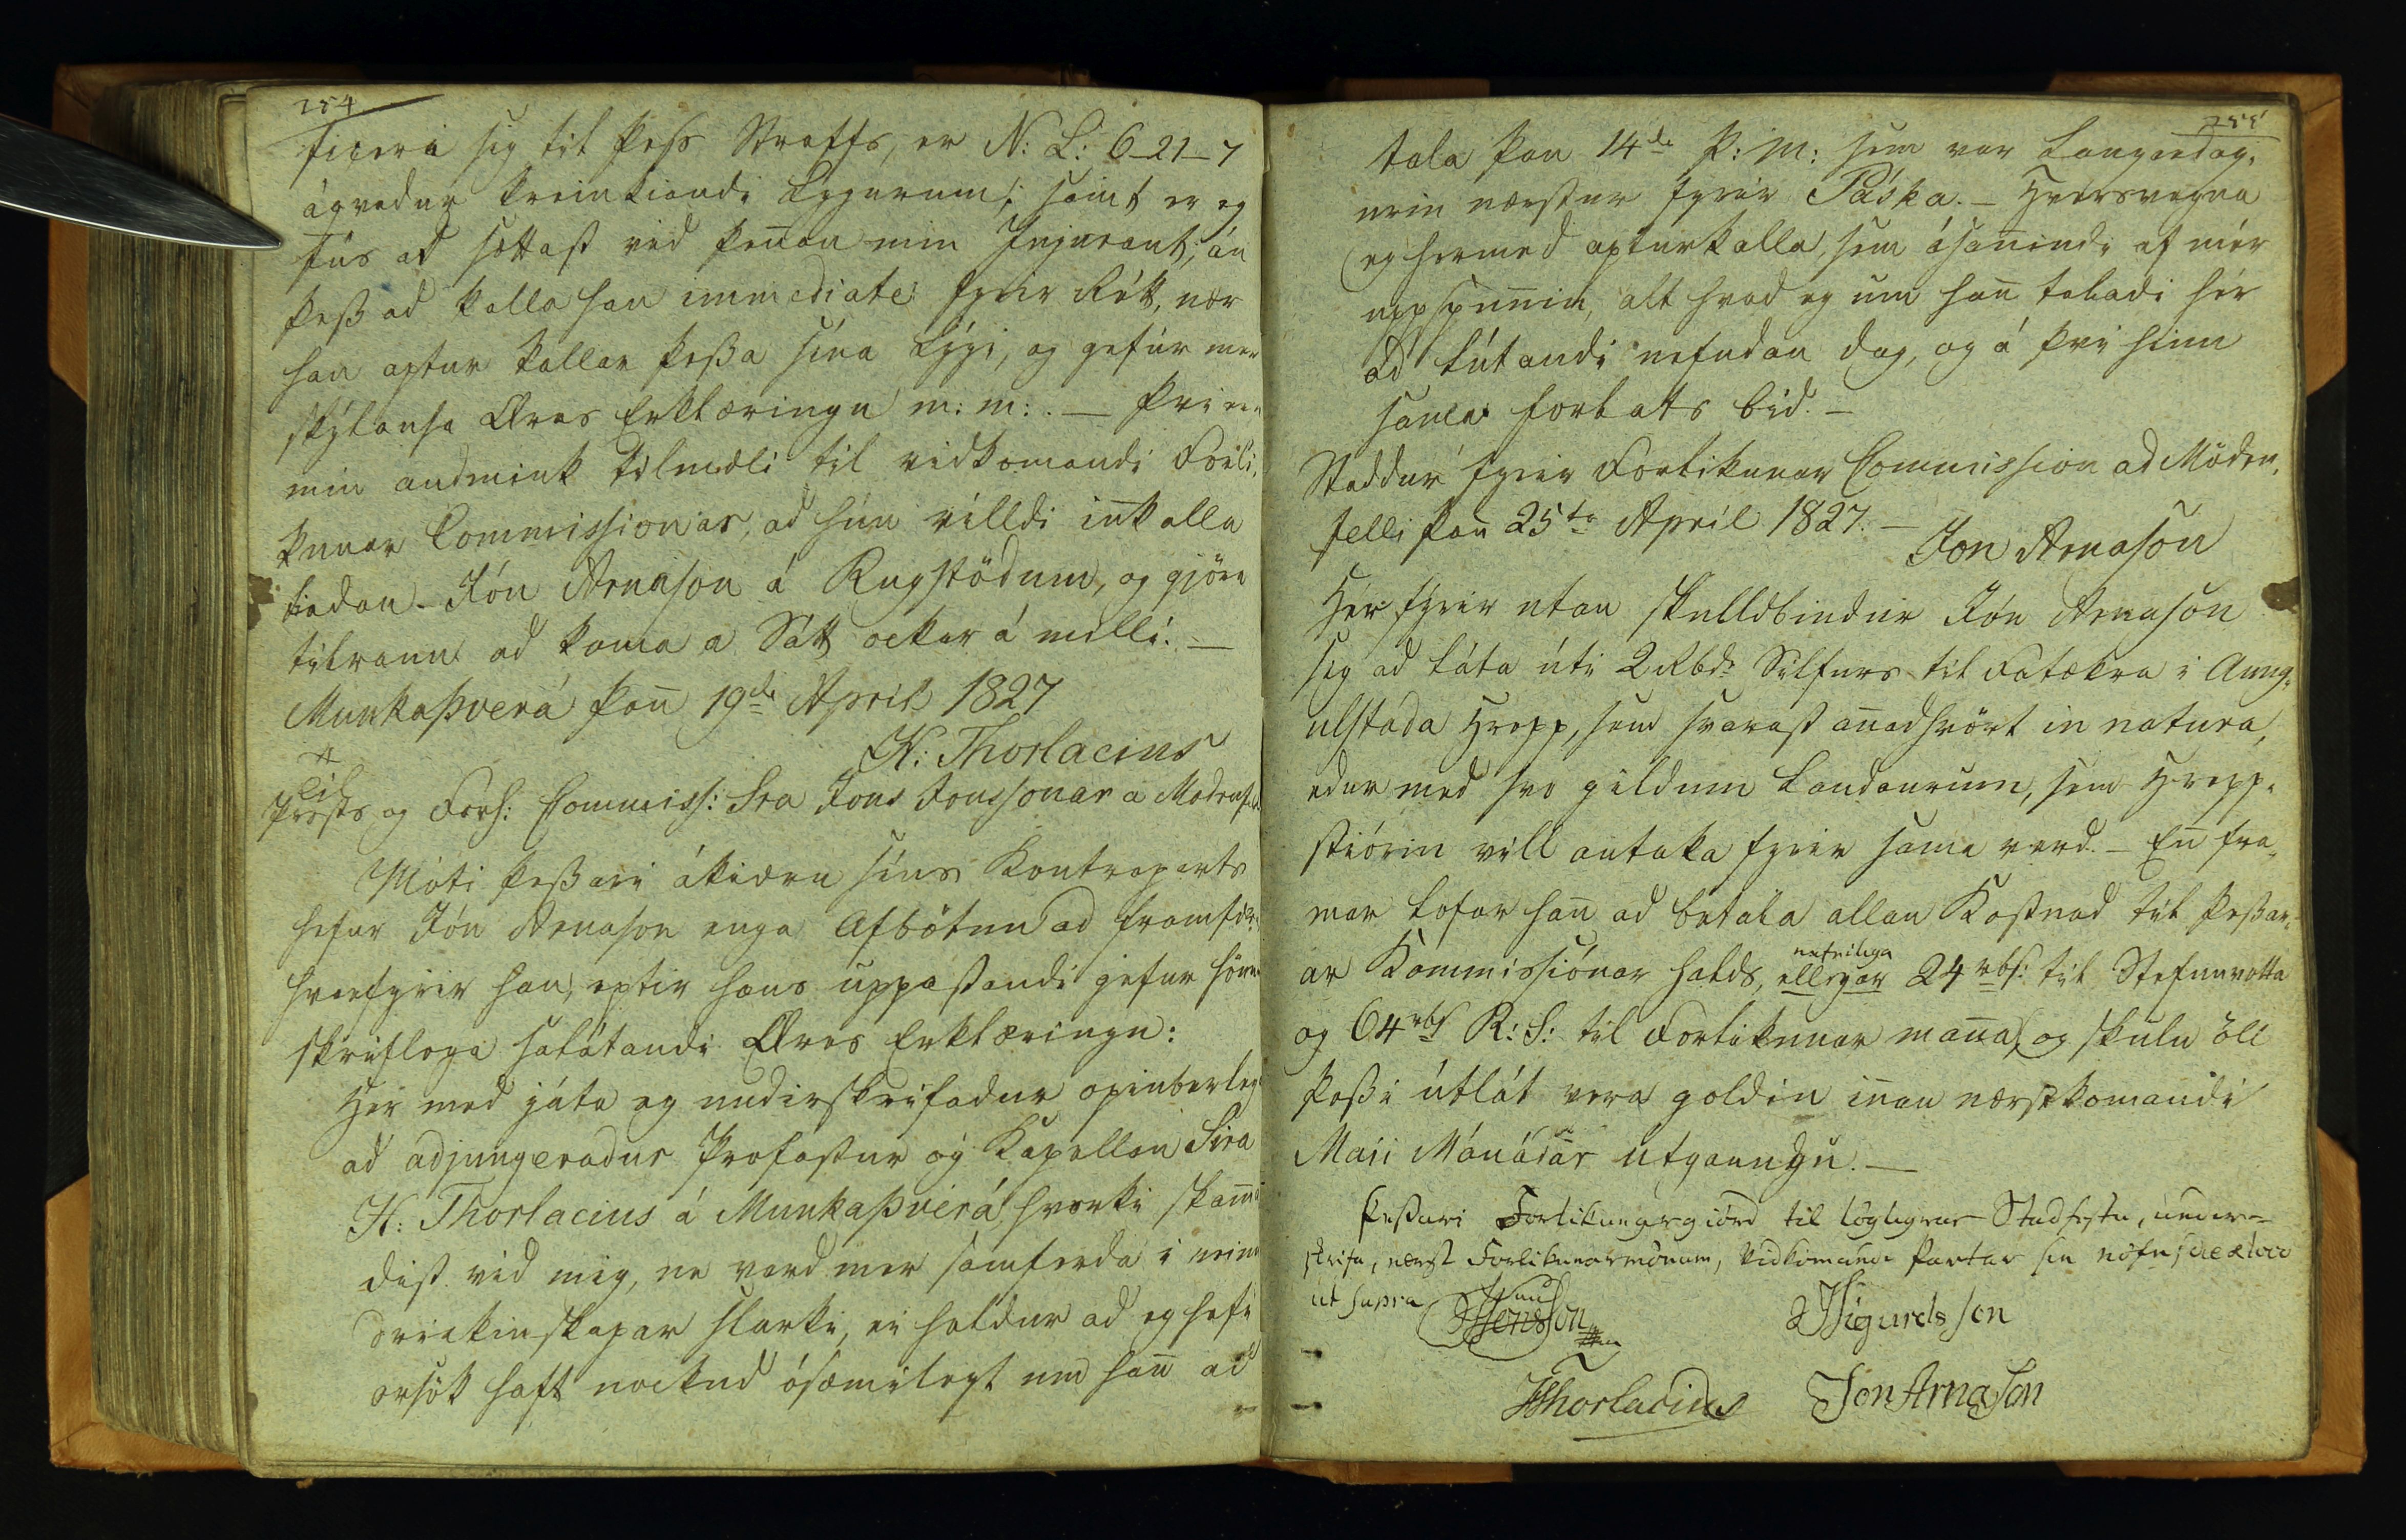 254
ficera sig til þess Straffs, er N: L: 6-21-7
ákvedur þreinkiandi Lygurum; samt er eg
fús ad sættast vid þenan min Injurant, án
þess ad kalla han immediate fyrir Rétt, nær
han aptur kallar þessa sína Lýgi, og gefur mér
skýlausa Æres Erklæringu m: m: . — Því er
min audmiuk tilmæli til vidkomandi Forli-
kunar Commissionar, ad hún villdi innkalla
tiedan Jón Arnason á Rugstödum, og gjöra
tilraun ad koma a Sátt ockar á milli. —
Munkaþverá þan̄ 19da April 1827
H: Thorlacius
Til
Prests og Forl: Commiss: Sra Jons Jonssonar a Modrufelli
Móti þessari ákiæru síns Kontraparts
hefur Jón Arnason enga Afbötun ad framføra
hvarfyrir han, eptir hans uppástandi gefur hönum
skriflega salátandi Æres Erklæringu:
Hér med játa eg undirskrifadur opinberlega
ad adjungeradur Profastur og Kapellan Sira
H: Thorlacius á Munkaþverá, hvorki skam̄a
dist vid mig, ne vard mer samferda i neinu
dryckiuskapar slarki, ei heldur ad eg hefi
orsök haft nockud ósæmilegt um han̄ ad
255
tala þan 14da þ: m: sem var Laugardag-
urin næstur fyrir Páska. — Hvarsvegna
eg hermed apturkalla, sem ósan̄indi af mér
uppspun̄in, alt hvad eg um han̄ taladi hér
ad lútandi nefndan dag, og á því hinn
sama forláts bid. —
Staddur fyrir Forlikunar Commission ad Mödru-
felli þan̄ 25ta April 1827. —
Jon Arnason
Hér fyrir utan skulldbindur Jón Arnason
sig ad láta úti 2 Rbd. Silfurs til Fatækra i Aung-
ulstada Hrepp, sem svarast an̄adhvört in natura,
edur med svo gildum Landaurum, sem Hrepp-
stiórin vill antaka fyrir sama verd. — En̄ fra-
mar lofar han̄ ad betala allan Kostnad til þessar-
ar Kommissiónar halds, nefnilega ellegar 24 rbs: til Stefnuvotta
og 64 rbs R: S: til Forlikunar man̄a, og skulu öll
þessi útlát vera goldin in̄an næstkomandi
Maii Mánadar utgaungu. —
Þessari Forlikunargiörd til löglegrar Stadfestu, under-
skrifa, næst Forlikunarmön̄um, Vidkomandi Partar sin nöfn die et loco
ut supra
JJonsson
JSigurdsson
HThorlacius
Jon Arnason